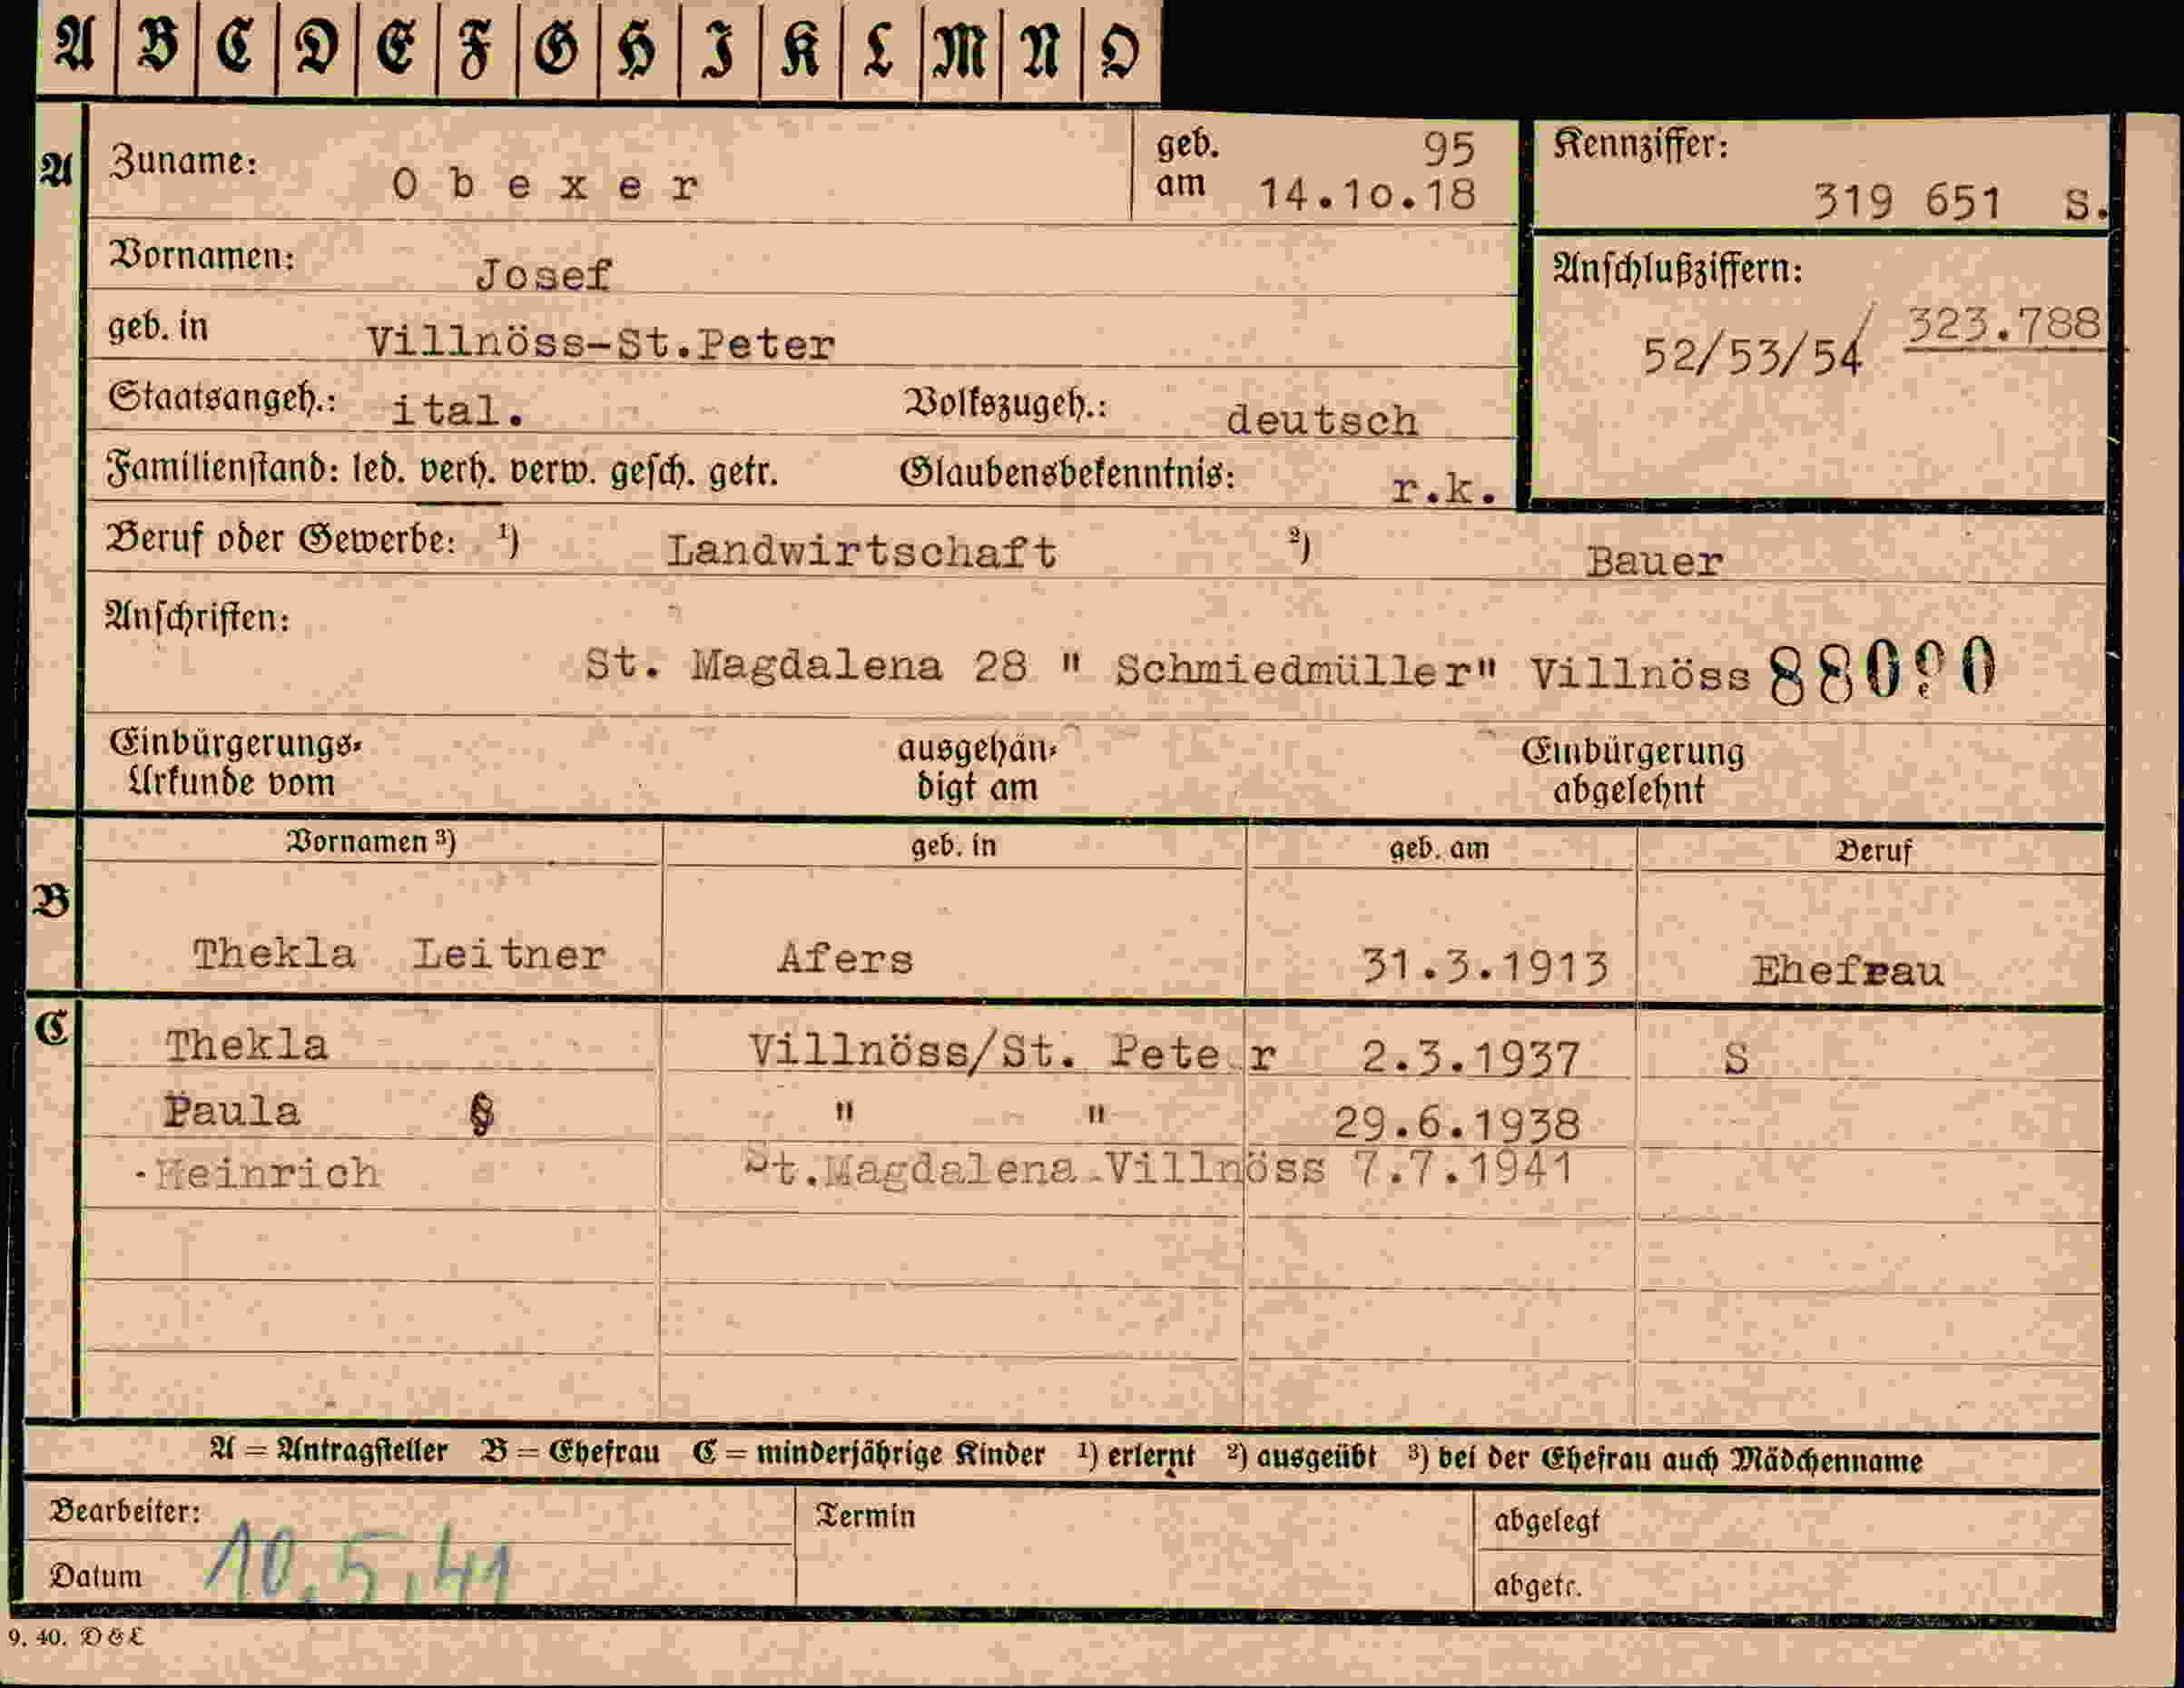 A B C D E F G H I K L M N O
A Zuname: Obexer geb. am 95 14.10.18
Kennziffer: 319 651 S.
Vornamen: Josef
Anschlußziffern: 52/53/54/ 323.788
geb. in Villnöss-St.Peter
Staatsangeh.: ital. Volkszugeh.: deutsch
Familienstand: led. verh. verw. gesch. getr. Glaubensbekenntnis: r.k.
Beruf oder Gewerbe: ¹) Landwirtschaft ²) Bauer
Anschriften:
St. Magdalena 28 " Schmiedmüller" Villnöss
Einbürgerungs- ausgehän- Einbürgerung
Urkunde vom digt am abgelehnt
Vornamen ³) geb. in geb. am Beruf
B
Thekla Leitner Afers 31.3.1913 Ehefrau
C Thekla Villnöss/St. Peter 2.3.1937 S
Paula § " " 29.6.1938
Heinrich St.Magdalena-Villnöss 7.7.1941
A = Antragsteller B = Ehefrau C = minderjährige Kinder ¹) erlernt ²) ausgeübt ³) bei der Ehefrau auch Mädchenname
Bearbeiter: Termin abgelegt
Datum 10.5.41 abgetr.
9. 40. D&L